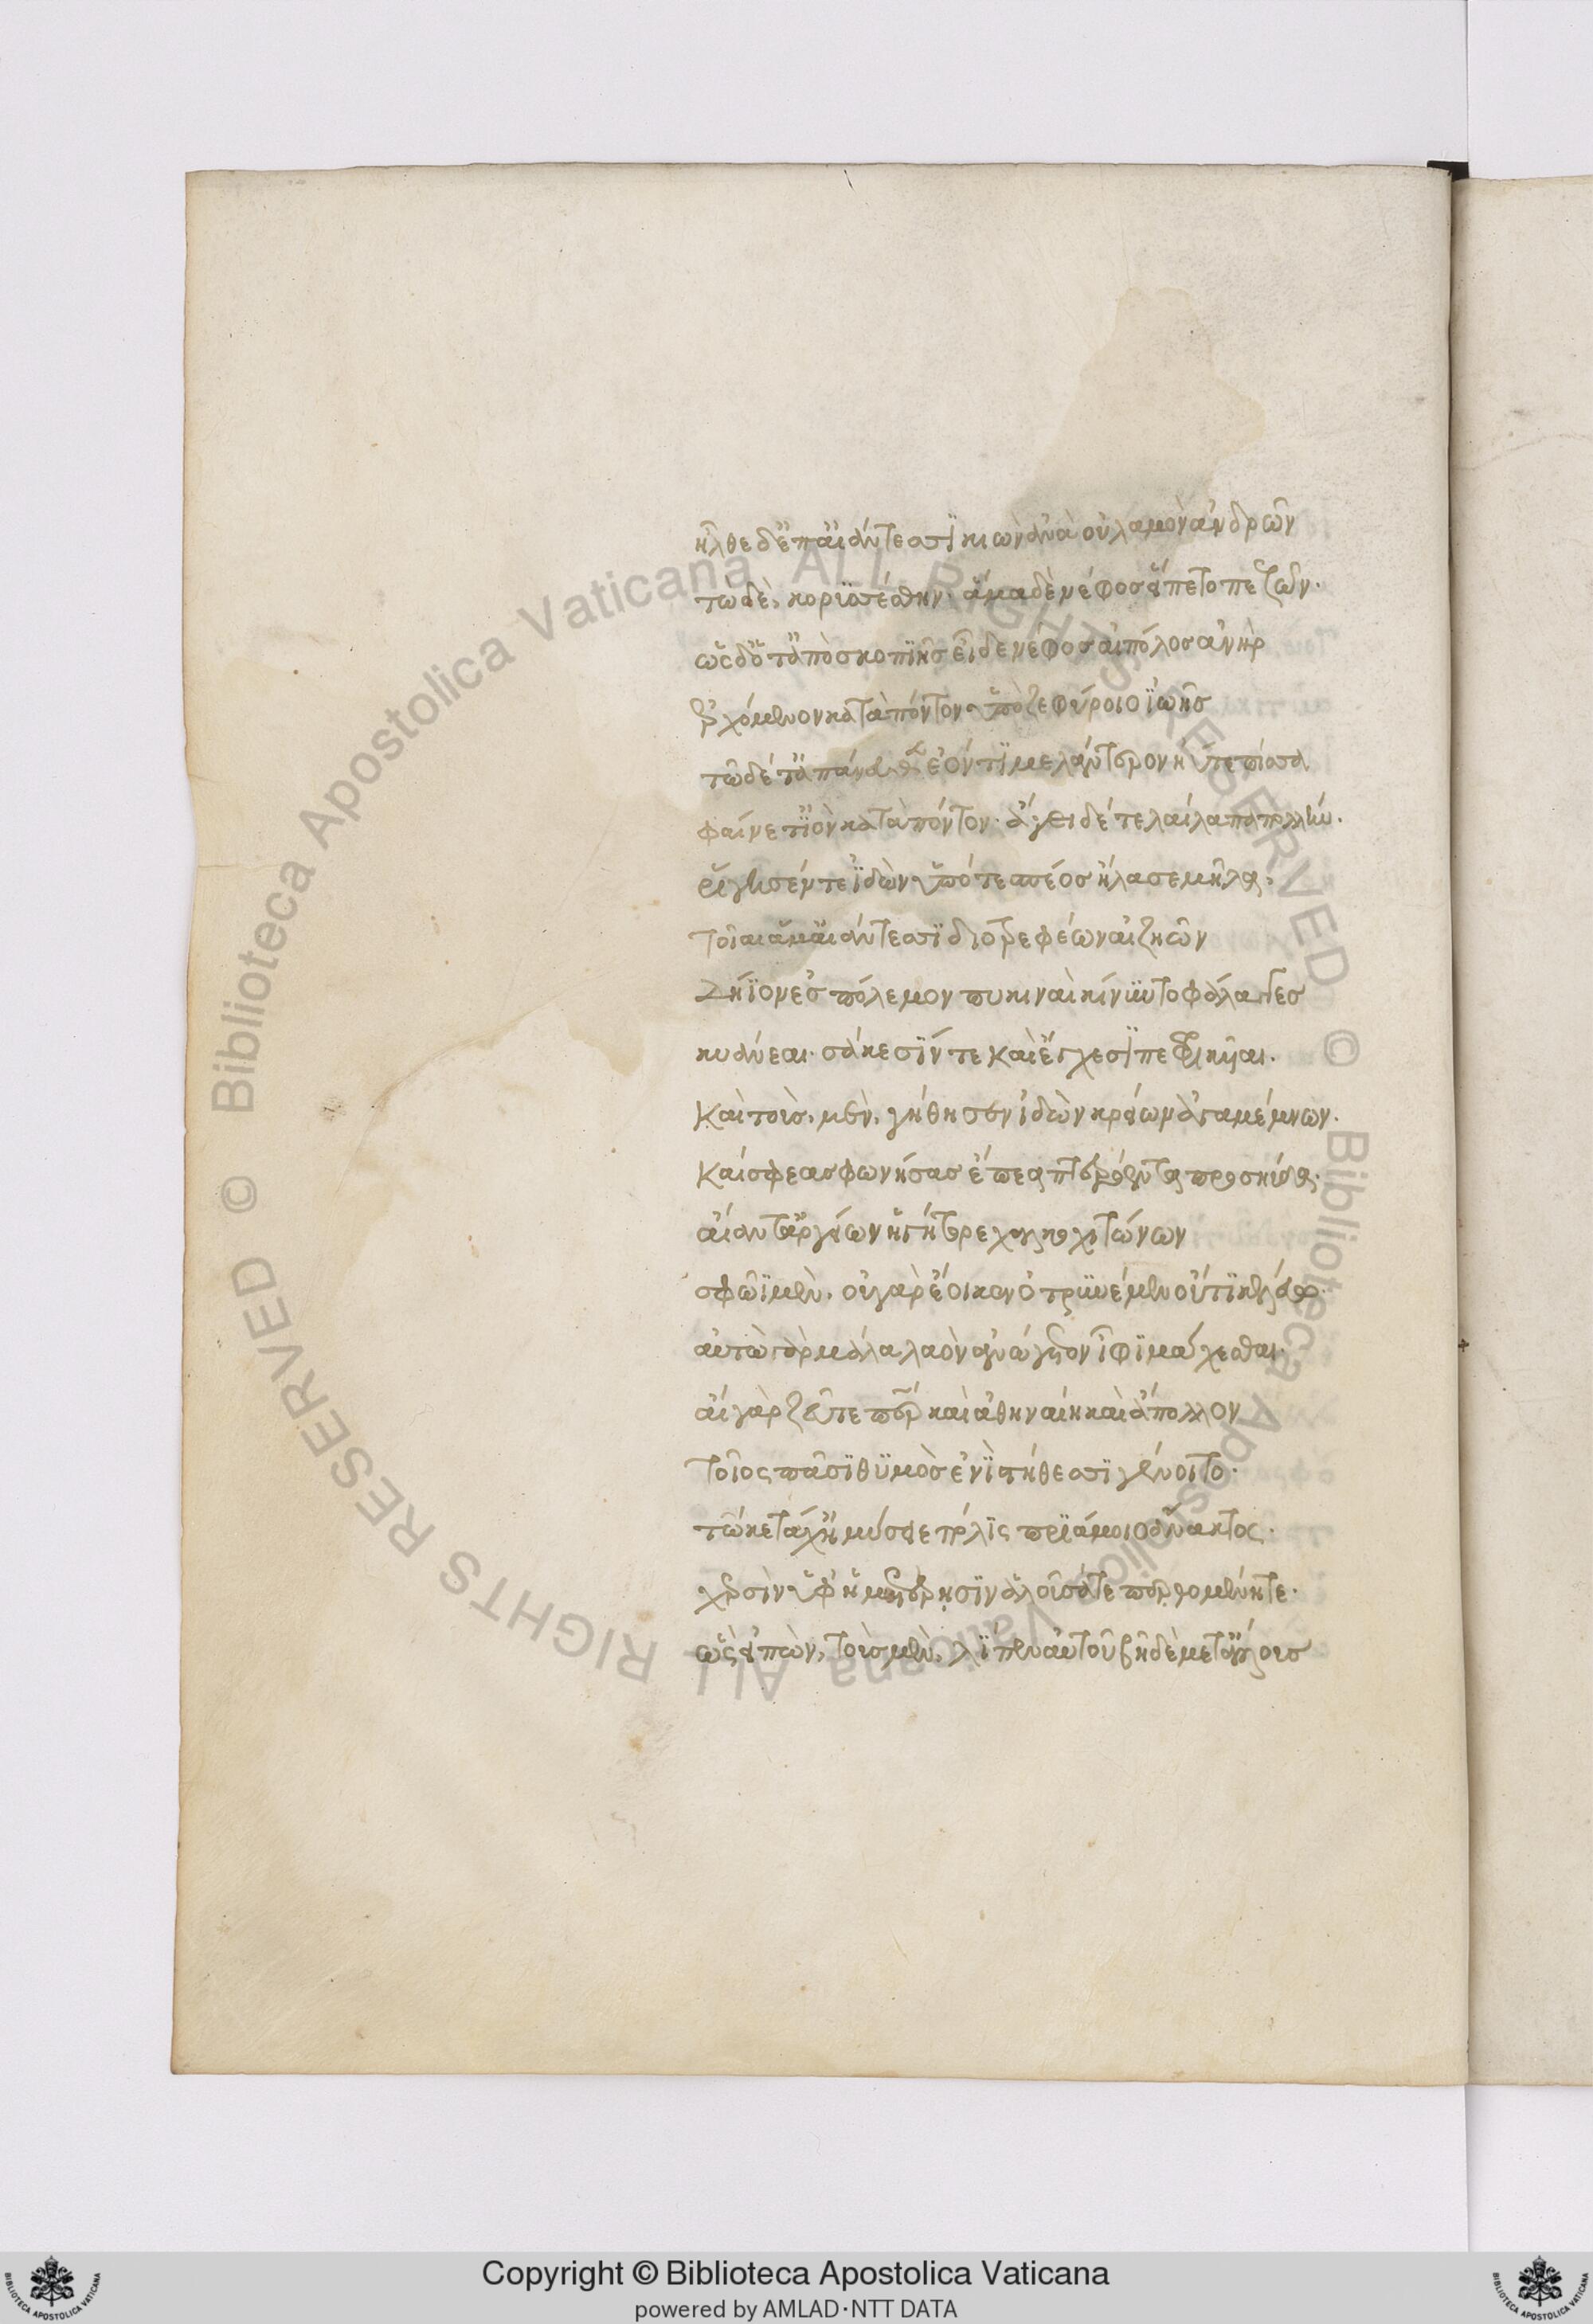 ἦλθε δ' ἐπ' αἰάντεσσι κιὼν ἀνὰ οὐλαμὸν ἀνδρῶν
τὼ δὲ, κορυσσέσθην· ἅμα δὲ νέφος εἵπετο πεζῶν·
ὡς δ' ὅτ' ἀπὸ σκοπιῆς εἶδε νέφος αἰπόλος ἀνὴρ
ἐρχόμενον κατὰ πόντον ὑπὸ ζεφύροιο ἰωῆς
τῶ δέ τ' ἄνευθεν ἐόντι μελάντερον ἠύτε πίσσα
φαίνετ' ἰὸν κατὰ πόντον· ἄγει δέ τε λαίλαπα πολλήν·
ῥίγησέν τε ἰδὼν ὑπό τε σπέος ἤλασε μῆλα,
τοῖαι ἅμ' αἰάντεσσι διοτρεφέων αἰζηῶν
δήϊον ἐς πόλεμον πυκιναὶ κίνυντο φάλαγγες
κυάνεαι· σάκεσίν τε καὶ ἔγχεσι πεφρικυῖαι·
καὶ τοὺς, μὲν, γήθησεν ἰδὼν κρείων ἀγαμέμνων·
καί σφεας φωνήσας ἔπεα πτερόεντα προσηύδα·
αἴαντ' ἀργείων ἡγήτορε χαλκοχιτώνων
σφῶϊ μὲν, οὐ γὰρ ἔοικ' ὀτρυνέμεν οὔτι κελεύω·
αὐτὼ γὰρ μάλα λαὸν ἀνώγετον ἶφι μάχεσθαι·
αἲ γὰρ ζεῦ τε πάτερ καὶ ἀθηναίη καὶ ἄπολλον
τοῖος πᾶσι θυμὸς ἐνὶ στήθεσσι γένοιτο·
τῶ κε τάχ' ἠμύσειε πόλις πριάμοιο ἄνακτος·
χερσὶν ὑφ' ἡμετέρησιν ἁλοῦσά τε περθομένη τε·
ὣς εἰπὼν, τοὺς μὲν, λίπεν αὐτοῦ βῆ δὲ μετ' ἄλλους
Copyright © Biblioteca Apostolica Vaticana
powered by AMLAD·NTT DATA
© Biblioteca Apostolica Vaticana ALL RIGHTS RESERVED © Biblioteca Apostolica Vaticana ALL RIGHTS RESERVED